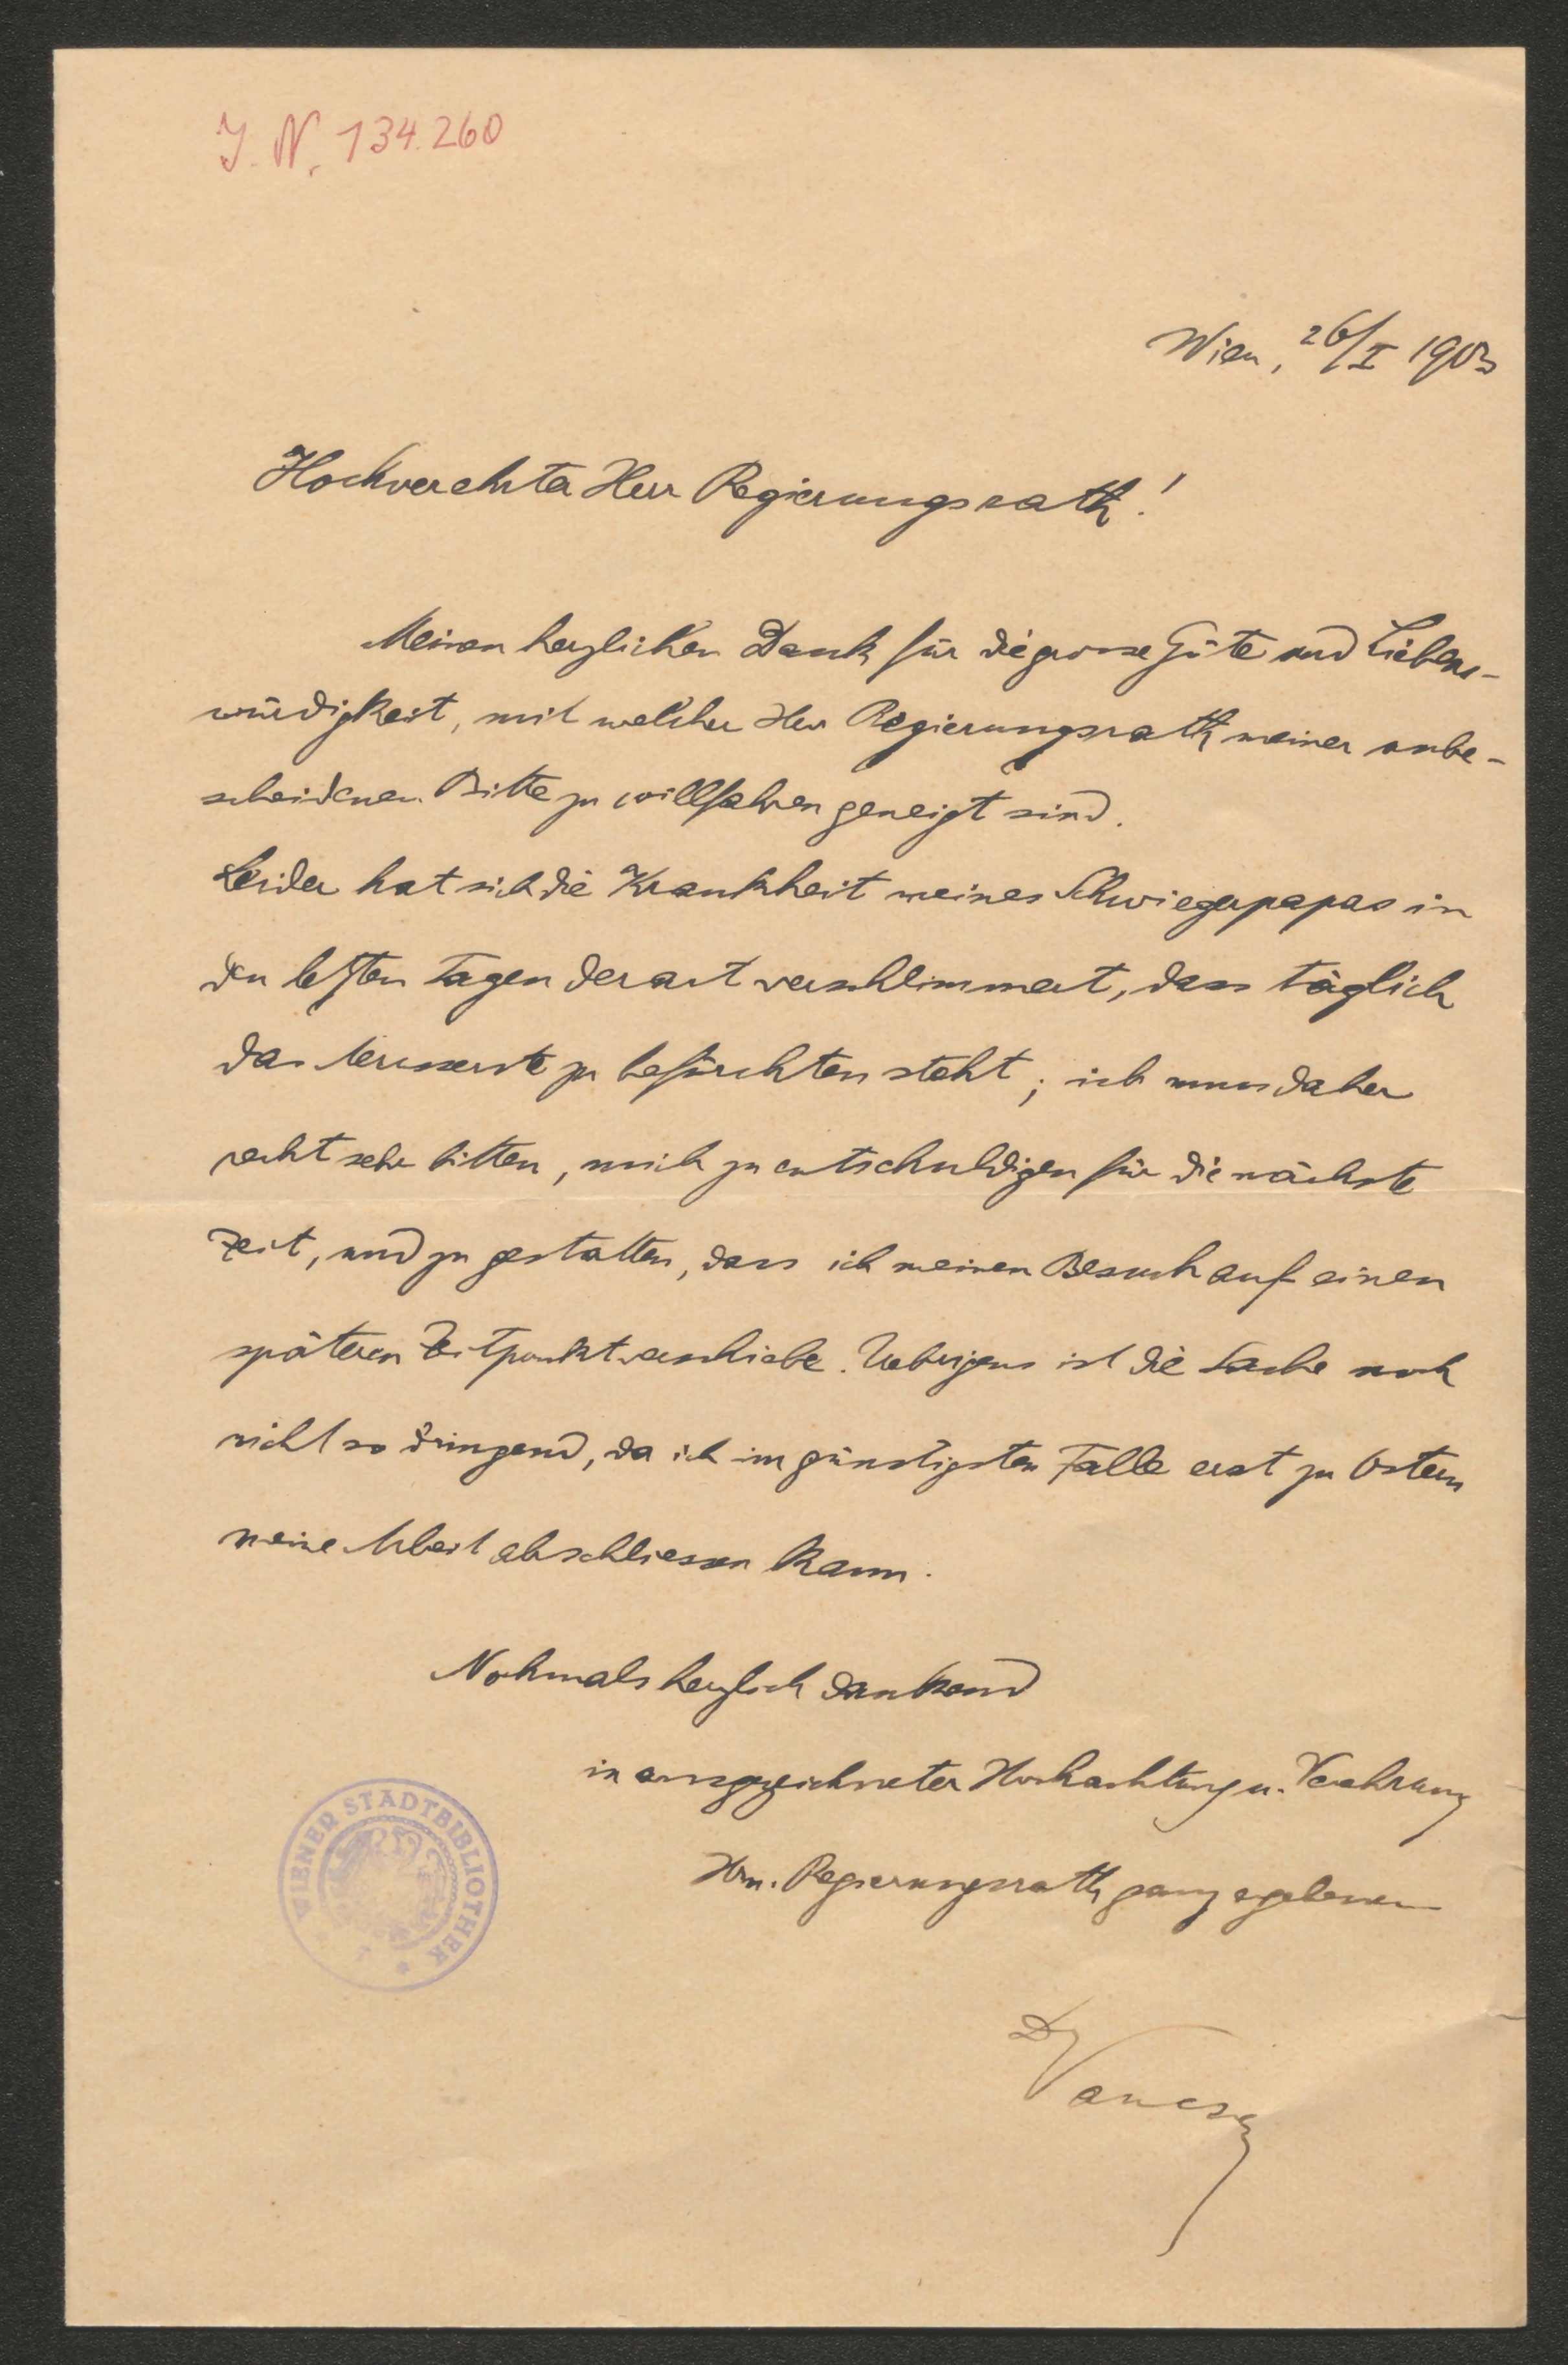 J. N. 134.260
Wien, 26/I 1903
Hochverehrter Herr Regierungsrath!
Meinen herzlichen Dank für die grosse Güte und Liebens-
würdigkeit, mit welcher Herr Regierungsrath meiner unbe-
scheidenen Bitte zu willfahren geneigt sind.
Leider hat sich die Krankheit meines Schwiegerpapas in
den letzten Tagen derart verschlimmert, dass täglich
das Aeusserste zu befürchten steht; ich muss daher
recht sehr bitten, mich zu entschuldigen für die nächste
Zeit, und zu gestatten, dass ich meinen Besuch auf einen
späteren Zeitpunkt verschiebe. Uebrigens ist die Sache noch
nicht so dringend, da ich im günstigsten Falle erst zu Ostern
meine Arbeit abschliessen kann.
Nochmals herzlich dankend
in ausgezeichneter Hochachtung u. Verehrung
Hrn. Regierungsrath ganz ergebener
Dr Vancsa
WIENER STADTBIBLIOTHEK